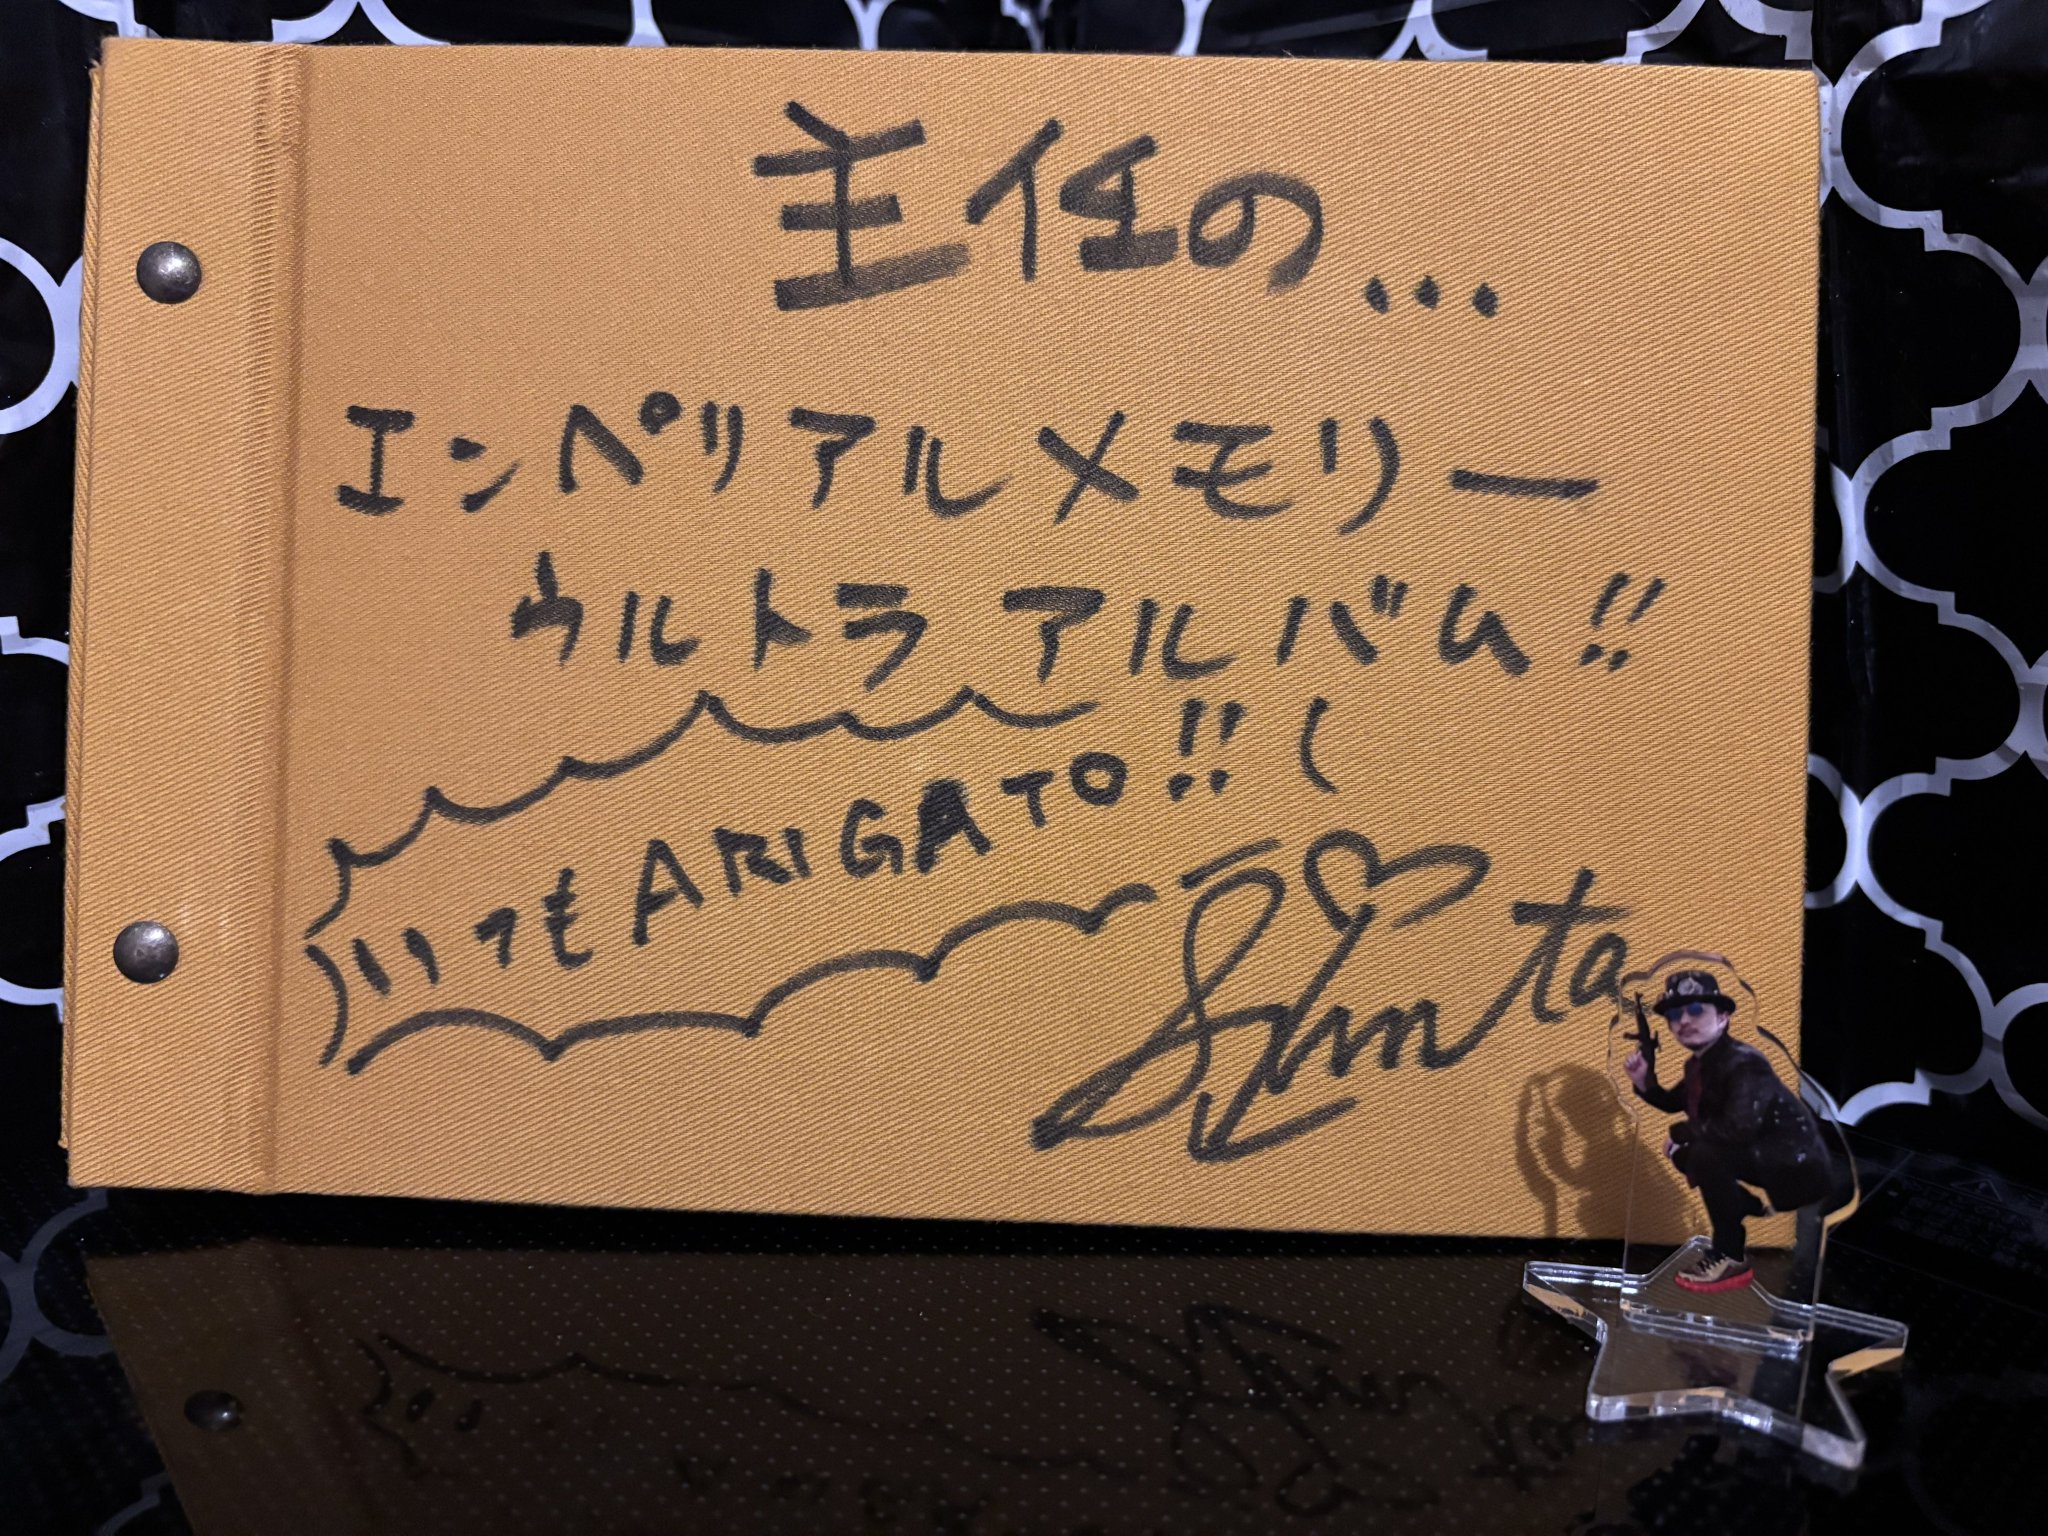 主任の...
エンペリアルメモリー
ウルトラアルバム!!
いつもARIGATO!!
Shunta